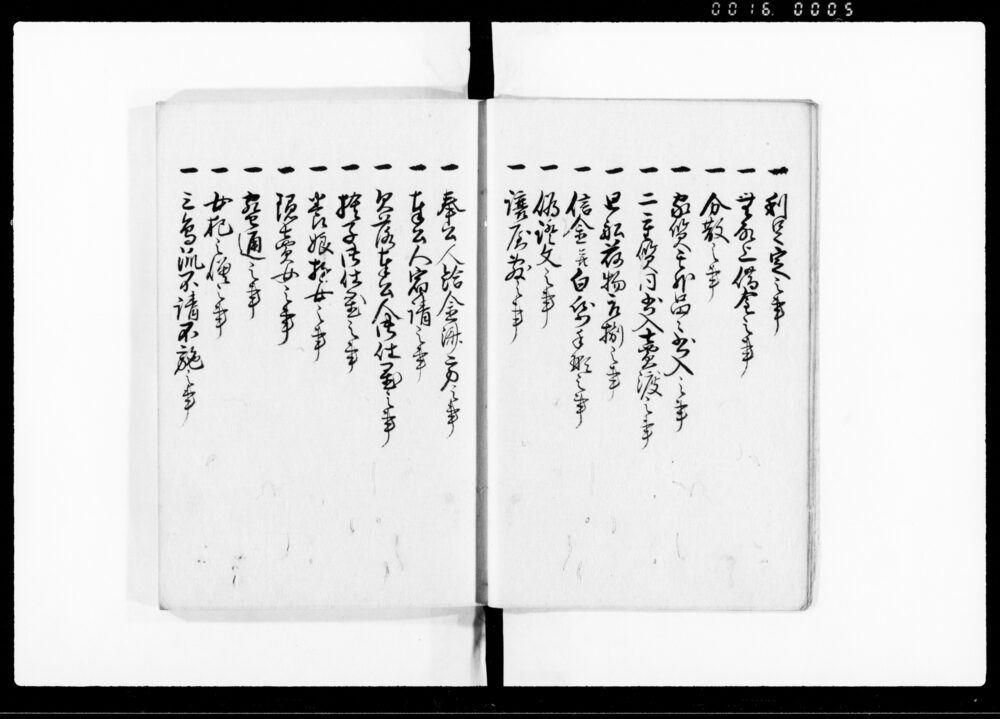 0016 0005
一 利足定之事
一 無取上借金之事
一 分散之事
一 家質并品々書入之事
一 二重質同書入賣渡之事
一 廻船荷物之事
一 借金并白紙手形之事
一 偽證文之事
一 讓屋敷之事
一 奉公人給金滞方之事
一 奉公人宿請之事
一 欠落奉公人御仕置之事
一 捨子御仕置之事
一 養娘遊女之事
一 隠賣女之事
一 密通之事
一 女犯之僧之事
一 三鳥派不請不施之事